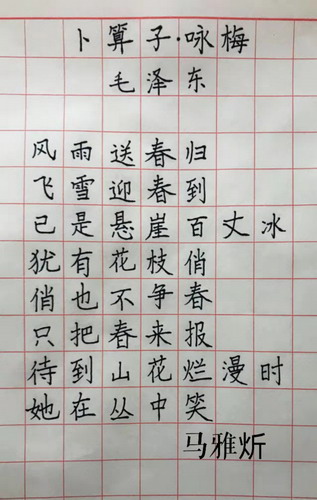 卜算子·咏梅
毛泽东
风雨送春归
飞雪迎春到
已是悬崖百丈冰
犹有花枝俏
俏也不争春
只把春来报
待到山花烂漫时
她在丛中笑
马雅炘